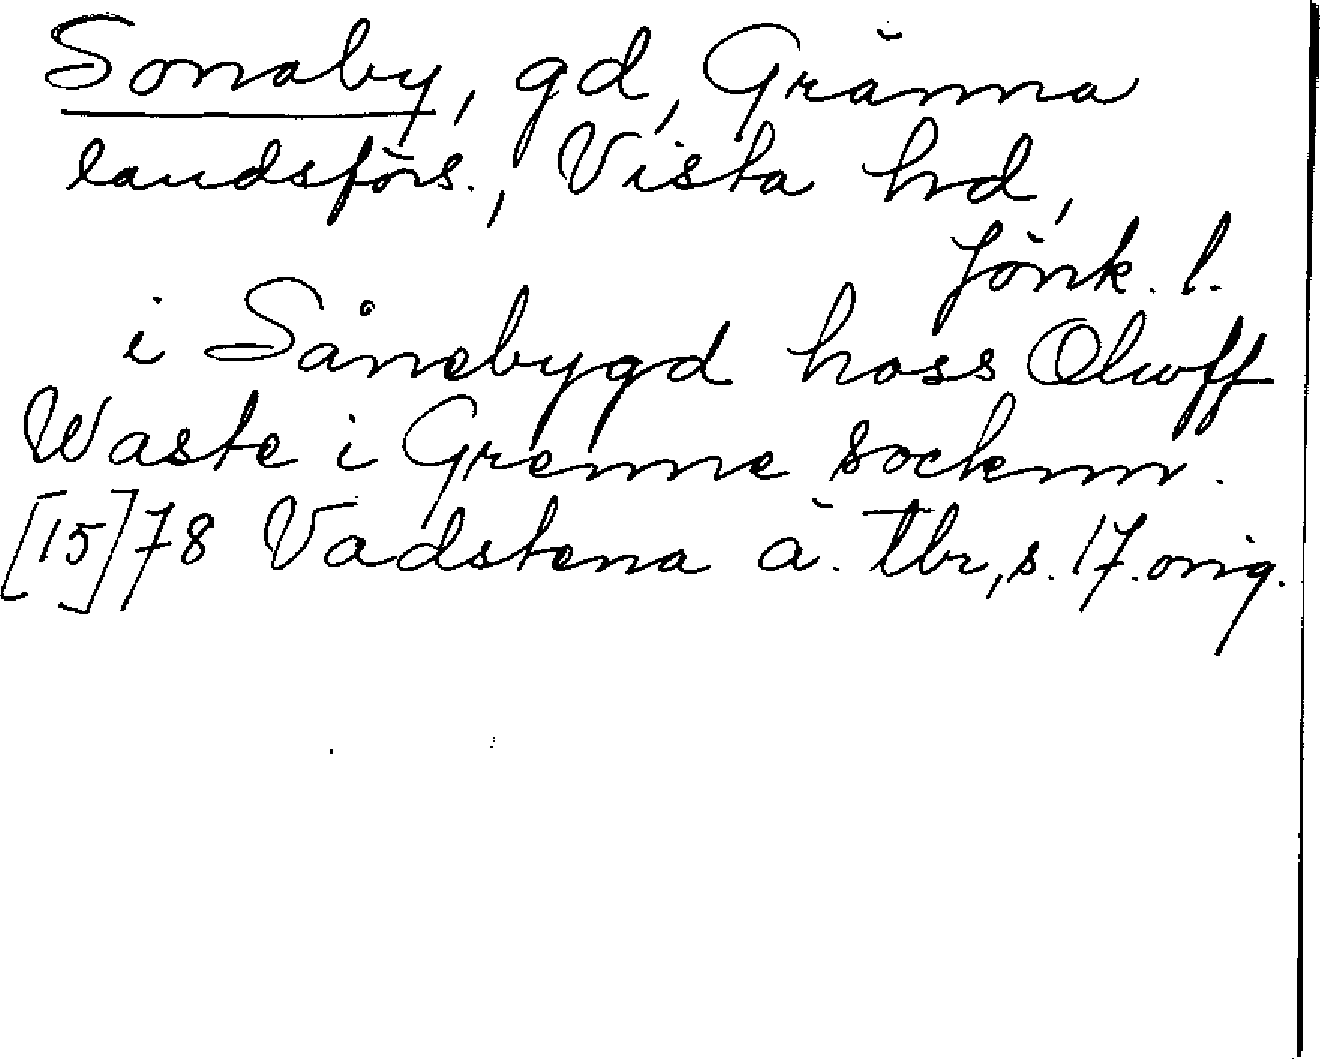 Sonaby, gd, Gränna
landsförs., Vista hd,
Jönk. l.
i Sånebygd hoss Olwff
Waste i Grenne socknn.
[15]78 Vadstena ä. tbr, s. 17. orig.